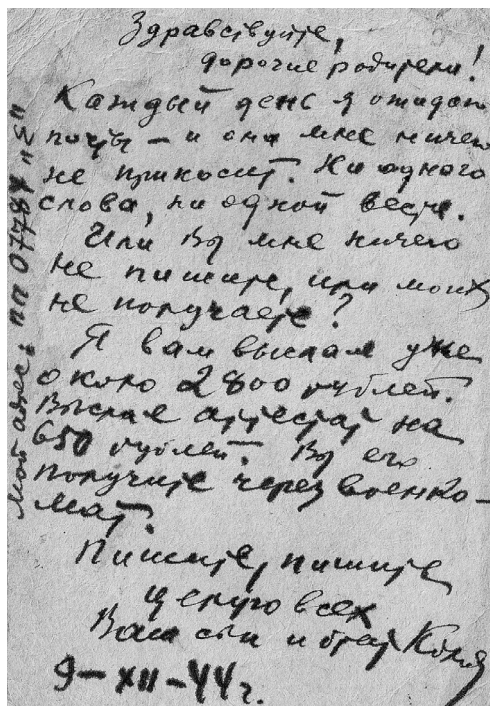 Здравствуйте,
дорогие родители!
Каждый день я ожидаю
почты – и она мне ничего
не приносит. Ни одного
слова, ни одной вести.
Или Вы мне ничего
не пишите, или моих
не получаете?
Я вам выслал уже
около 2800 рублей.
Выслал аттестат на
650 рублей. Вы его
получите через военко-
мат.
Пишите, пишите
целую всех
Ваш сын и брат Коля
9–XII–44 г.
Мой адрес: ПП 07784 "Е"